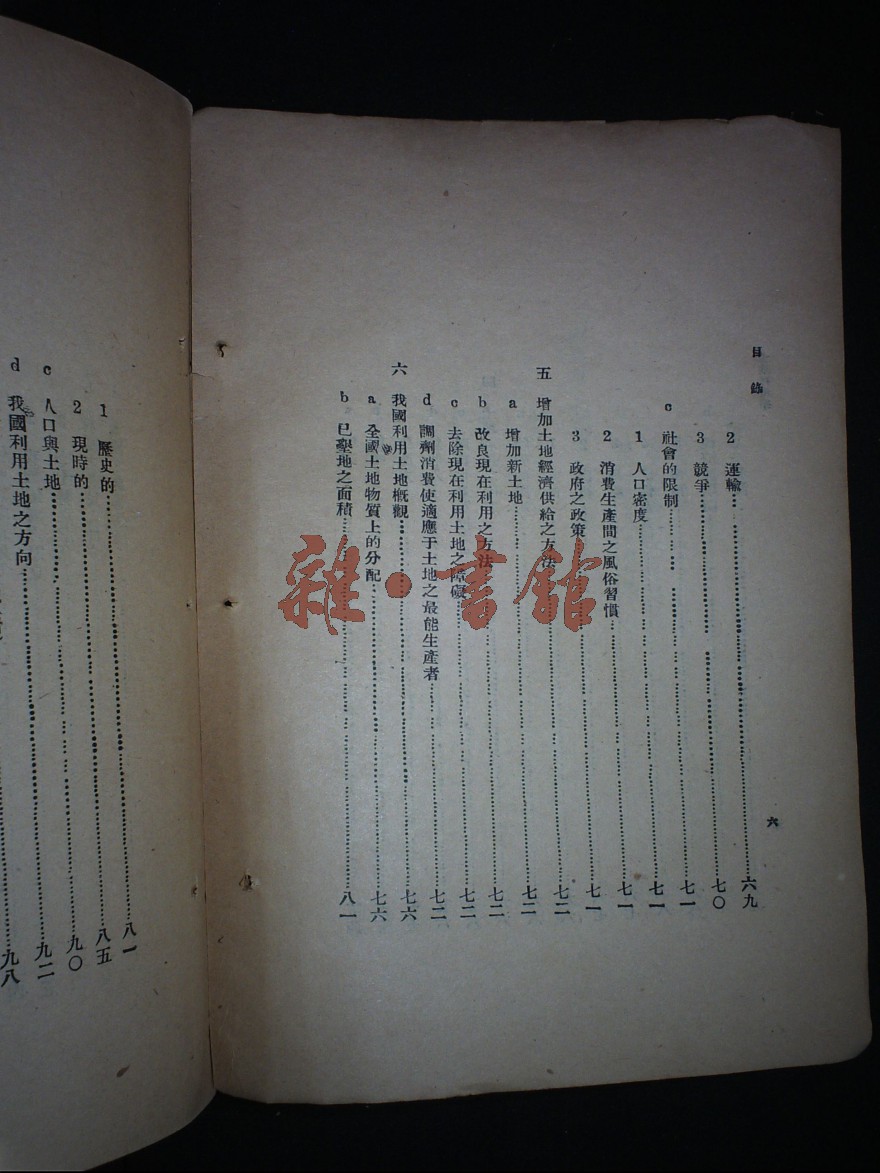 目錄
六
2 運輸……六九
3 競爭……七〇
c 社會的限制……七一
1 人口密度……七一
2 消費生產間之風俗習慣……七一
3 政府之政策……七一
五 增加土地經濟供給之方法……七二
a 增加新土地……七二
b 改良現在利用之方法……七二
c 去除現在利用土地之障礙……七二
d 調劑消費使適應于土地之最能生產者……七二
六 我國利用土地概觀……七六
a 全國土地物質上的分配……七六
b 已墾地之面積……八一
1 歷史的……八一
2 現時的……八五
c 人口與土地……九〇
d 我國利用土地之方向……九二
九八
雜·書館